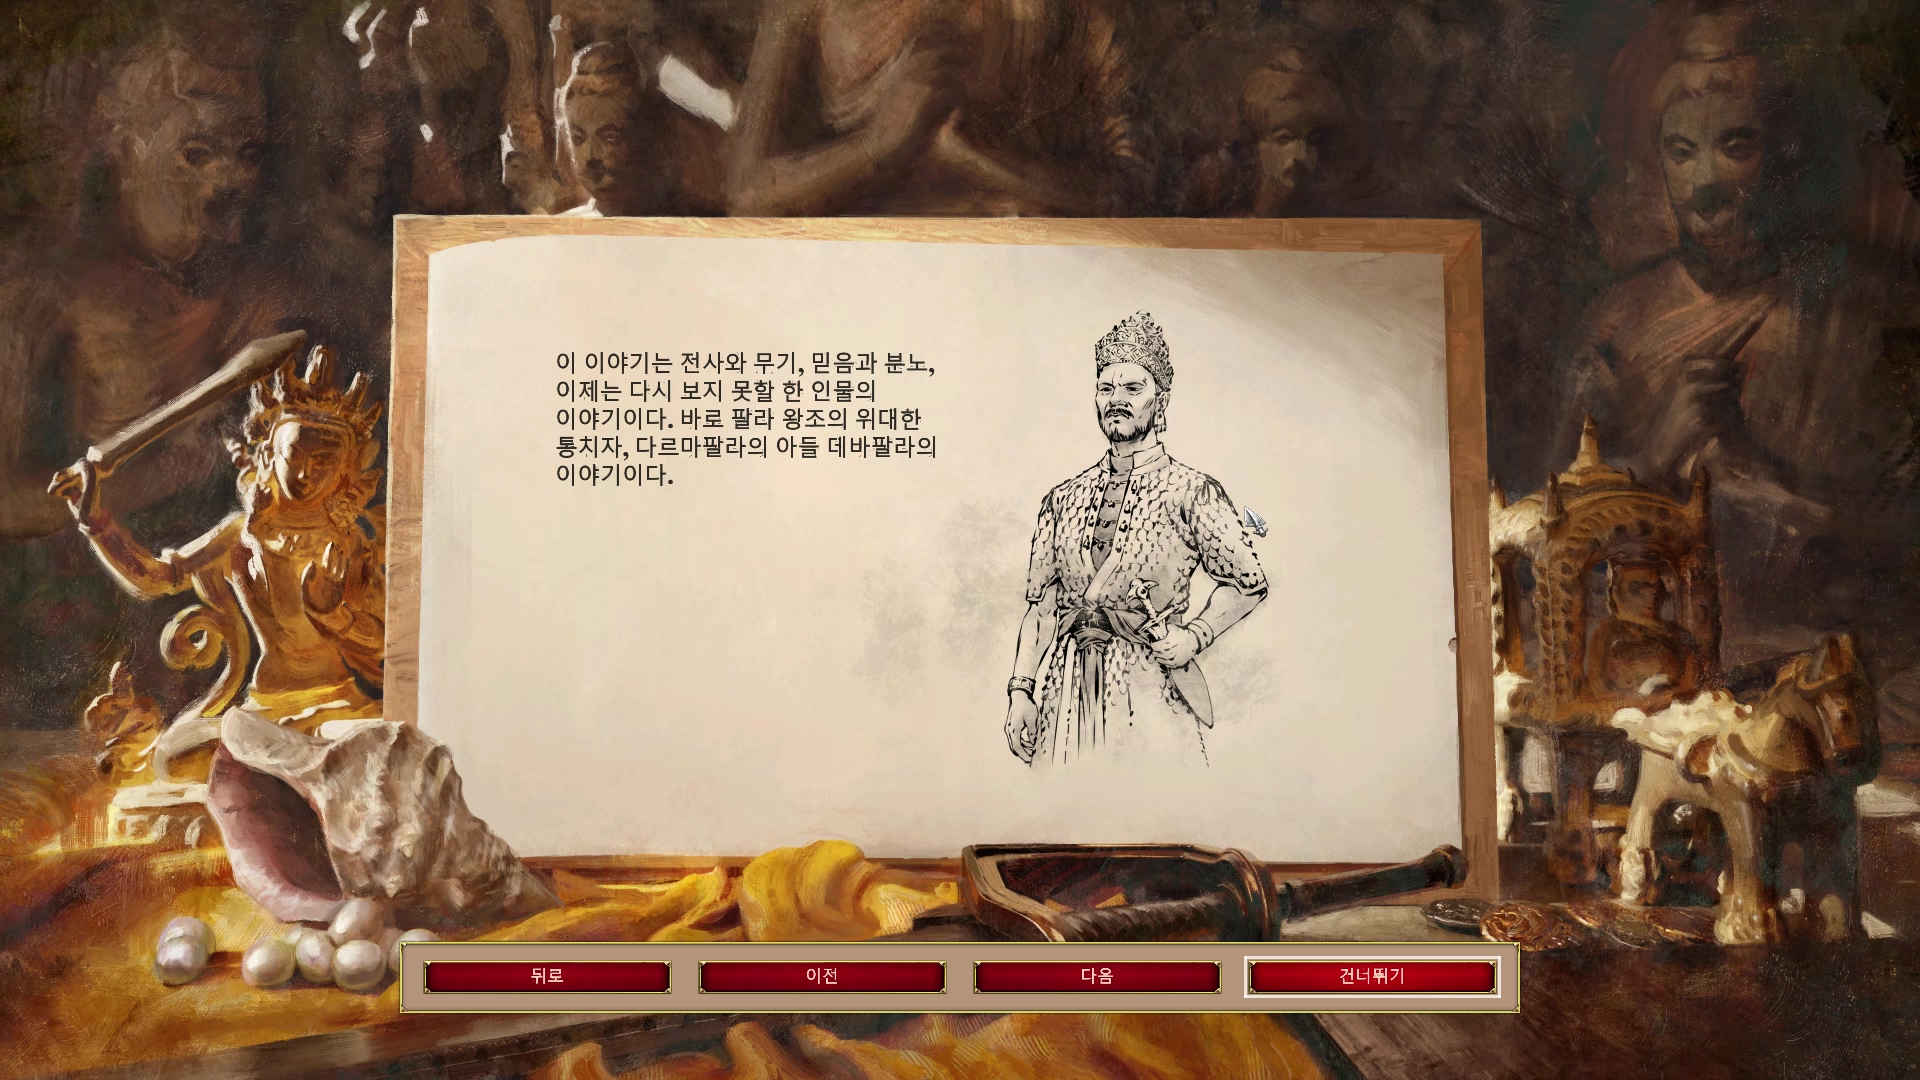 이 이야기는 전사와 무기, 믿음과 분노,
이제는 다시 보지 못할 한 인물의
이야기이다. 바로 팔라 왕조의 위대한
통치자, 다르마팔라의 아들 데바팔라의
이야기이다.
뒤로
이전
다음
건너뛰기